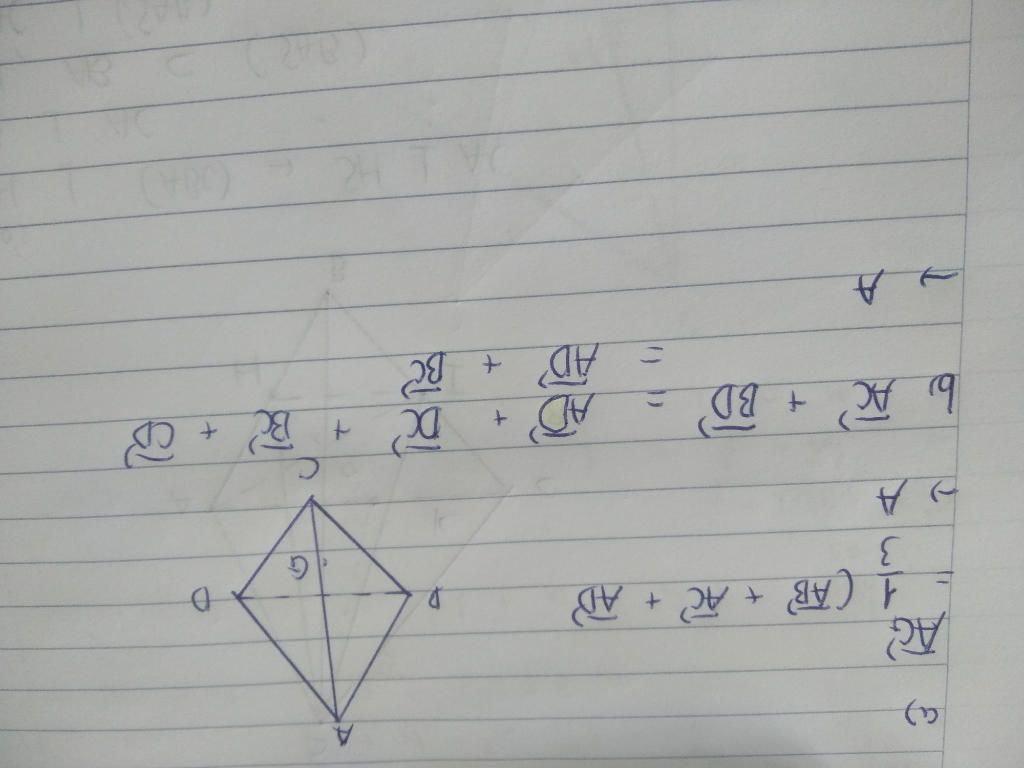 a)
A
$\overrightarrow{AG}$
= $\frac{1}{3}$ ($\overrightarrow{AB}$ + $\overrightarrow{AC}$ + $\overrightarrow{AD}$
D
G
→ A
C
b, $\overrightarrow{AC}$ + $\overrightarrow{BD}$ = $\overrightarrow{AD}$ + $\overrightarrow{DC}$ + $\overrightarrow{BC}$ + $\overrightarrow{CD}$
= $\overrightarrow{AD}$ + $\overrightarrow{BC}$
→ A